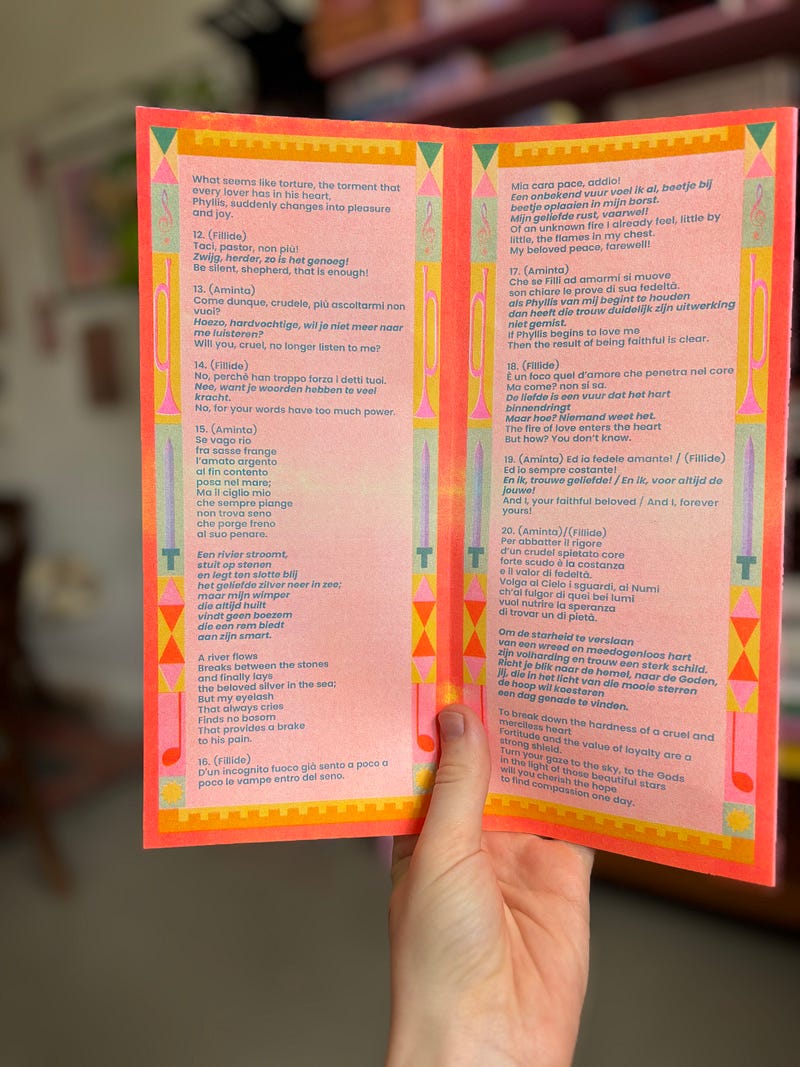 What seems like torture, the torment that
every lover has in his heart,
Phyllis, suddenly changes into pleasure
and joy.
12. (Fillide)
Taci, pastor, non più!
Zwijg, herder, zo is het genoeg!
Be silent, shepherd, that is enough!
13. (Aminta)
Come dunque, crudele, più ascoltarmi non
vuoi?
Hoezo, hardvochtige, wil je niet meer naar
me luisteren?
Will you, cruel, no longer listen to me?
14. (Fillide)
No, perchè han troppo forza i detti tuoi.
Nee, want je woorden hebben te veel
kracht.
No, for your words have too much power.
15. (Aminta)
Se vago rio
fra sasse frange
l'amato argento
al fin contento
posa nel mare;
Ma il ciglio mio
che sempre piange
non trova seno
che porge freno
al suo penare.
Een rivier stroomt,
stuit op stenen
en legt ten slotte blij
het geliefde zilver neer in zee;
maar mijn wimper
die altijd huilt
vindt geen boezem
die een rem biedt
aan zijn smart.
A river flows
Breaks between the stones
and finally lays
the beloved silver in the sea;
But my eyelash
That always cries
Finds no bosom
That provides a brake
to his pain.
16. (Fillide)
D'un incognito fuoco già sento a poco a
poco le vampe entro del seno.
Mia cara pace, addio!
Een onbekend vuur voel ik al, beetje bij
beetje oplaaien in mijn borst.
Mijn geliefde rust, vaarwel!
Of an unknown fire I already feel, little by
little, the flames in my chest.
My beloved peace, farewell!
17. (Aminta)
Che se Filli ad amarmi si muove
son chiare le prove di sua fedeltà.
als Phyllis van mij begint te houden
dan heeft die trouw duidelijk zijn uitwerking
niet gemist.
If Phyllis begins to love me
Then the result of being faithful is clear.
18. (Fillide)
È un foco quel d'amore che penetra nel core
Ma come? non si sa.
De liefde is een vuur dat het hart
binnendringt
Maar hoe? Niemand weet het.
The fire of love enters the heart
But how? You don't know.
19. (Aminta) Ed io fedele amante! / (Fillide)
Ed io sempre costante!
En ik, trouwe geliefde! / En ik, voor altijd de
jouwe!
And I, your faithful beloved / And I, forever
yours!
20. (Aminta)/(Fillide)
Per abbatter il rigore
d'un crudel spietato core
forte scudo è la costanza
e il valor di fedeltà.
Volga al Cielo i sguardi, ai Numi
ch'al fulgor di quei bei lumi
vuol nutrire la speranza
di trovar un dì pietà.
Om de starheid te verslaan
van een wreed en meedogenloos hart
zijn volharding en trouw een sterk schild.
Richt je blik naar de hemel, naar de Goden,
jij, die in het licht van die mooie sterren
de hoop wil koesteren
een dag genade te vinden.
To break down the hardness of a cruel and
merciless heart
Fortitude and the value of loyalty are a
strong shield.
Turn your gaze to the sky, to the Gods
in the light of those beautiful stars
will you cherish the hope
to find compassion one day.